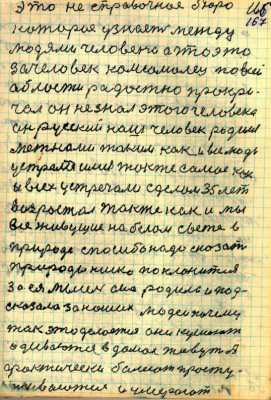 это не справочное бюро
которое узнает между
людями человека а то это
за человек комсомолец по всей
области радостно прокри-
чал он не знал этого человека
он русский наш человек родился
такими как и все люди
также самое как
и всех встречали сделом 35 лет
возрастал также как и мы
все живущие на белом свете в
природе спосибо надо сказать
природы низко поклонится
за ея она родила и под-
сказала за наших людей почему
так это делается они кушают
одеваются в домах живут и
практически болеют просту-
живаются и умерают
167